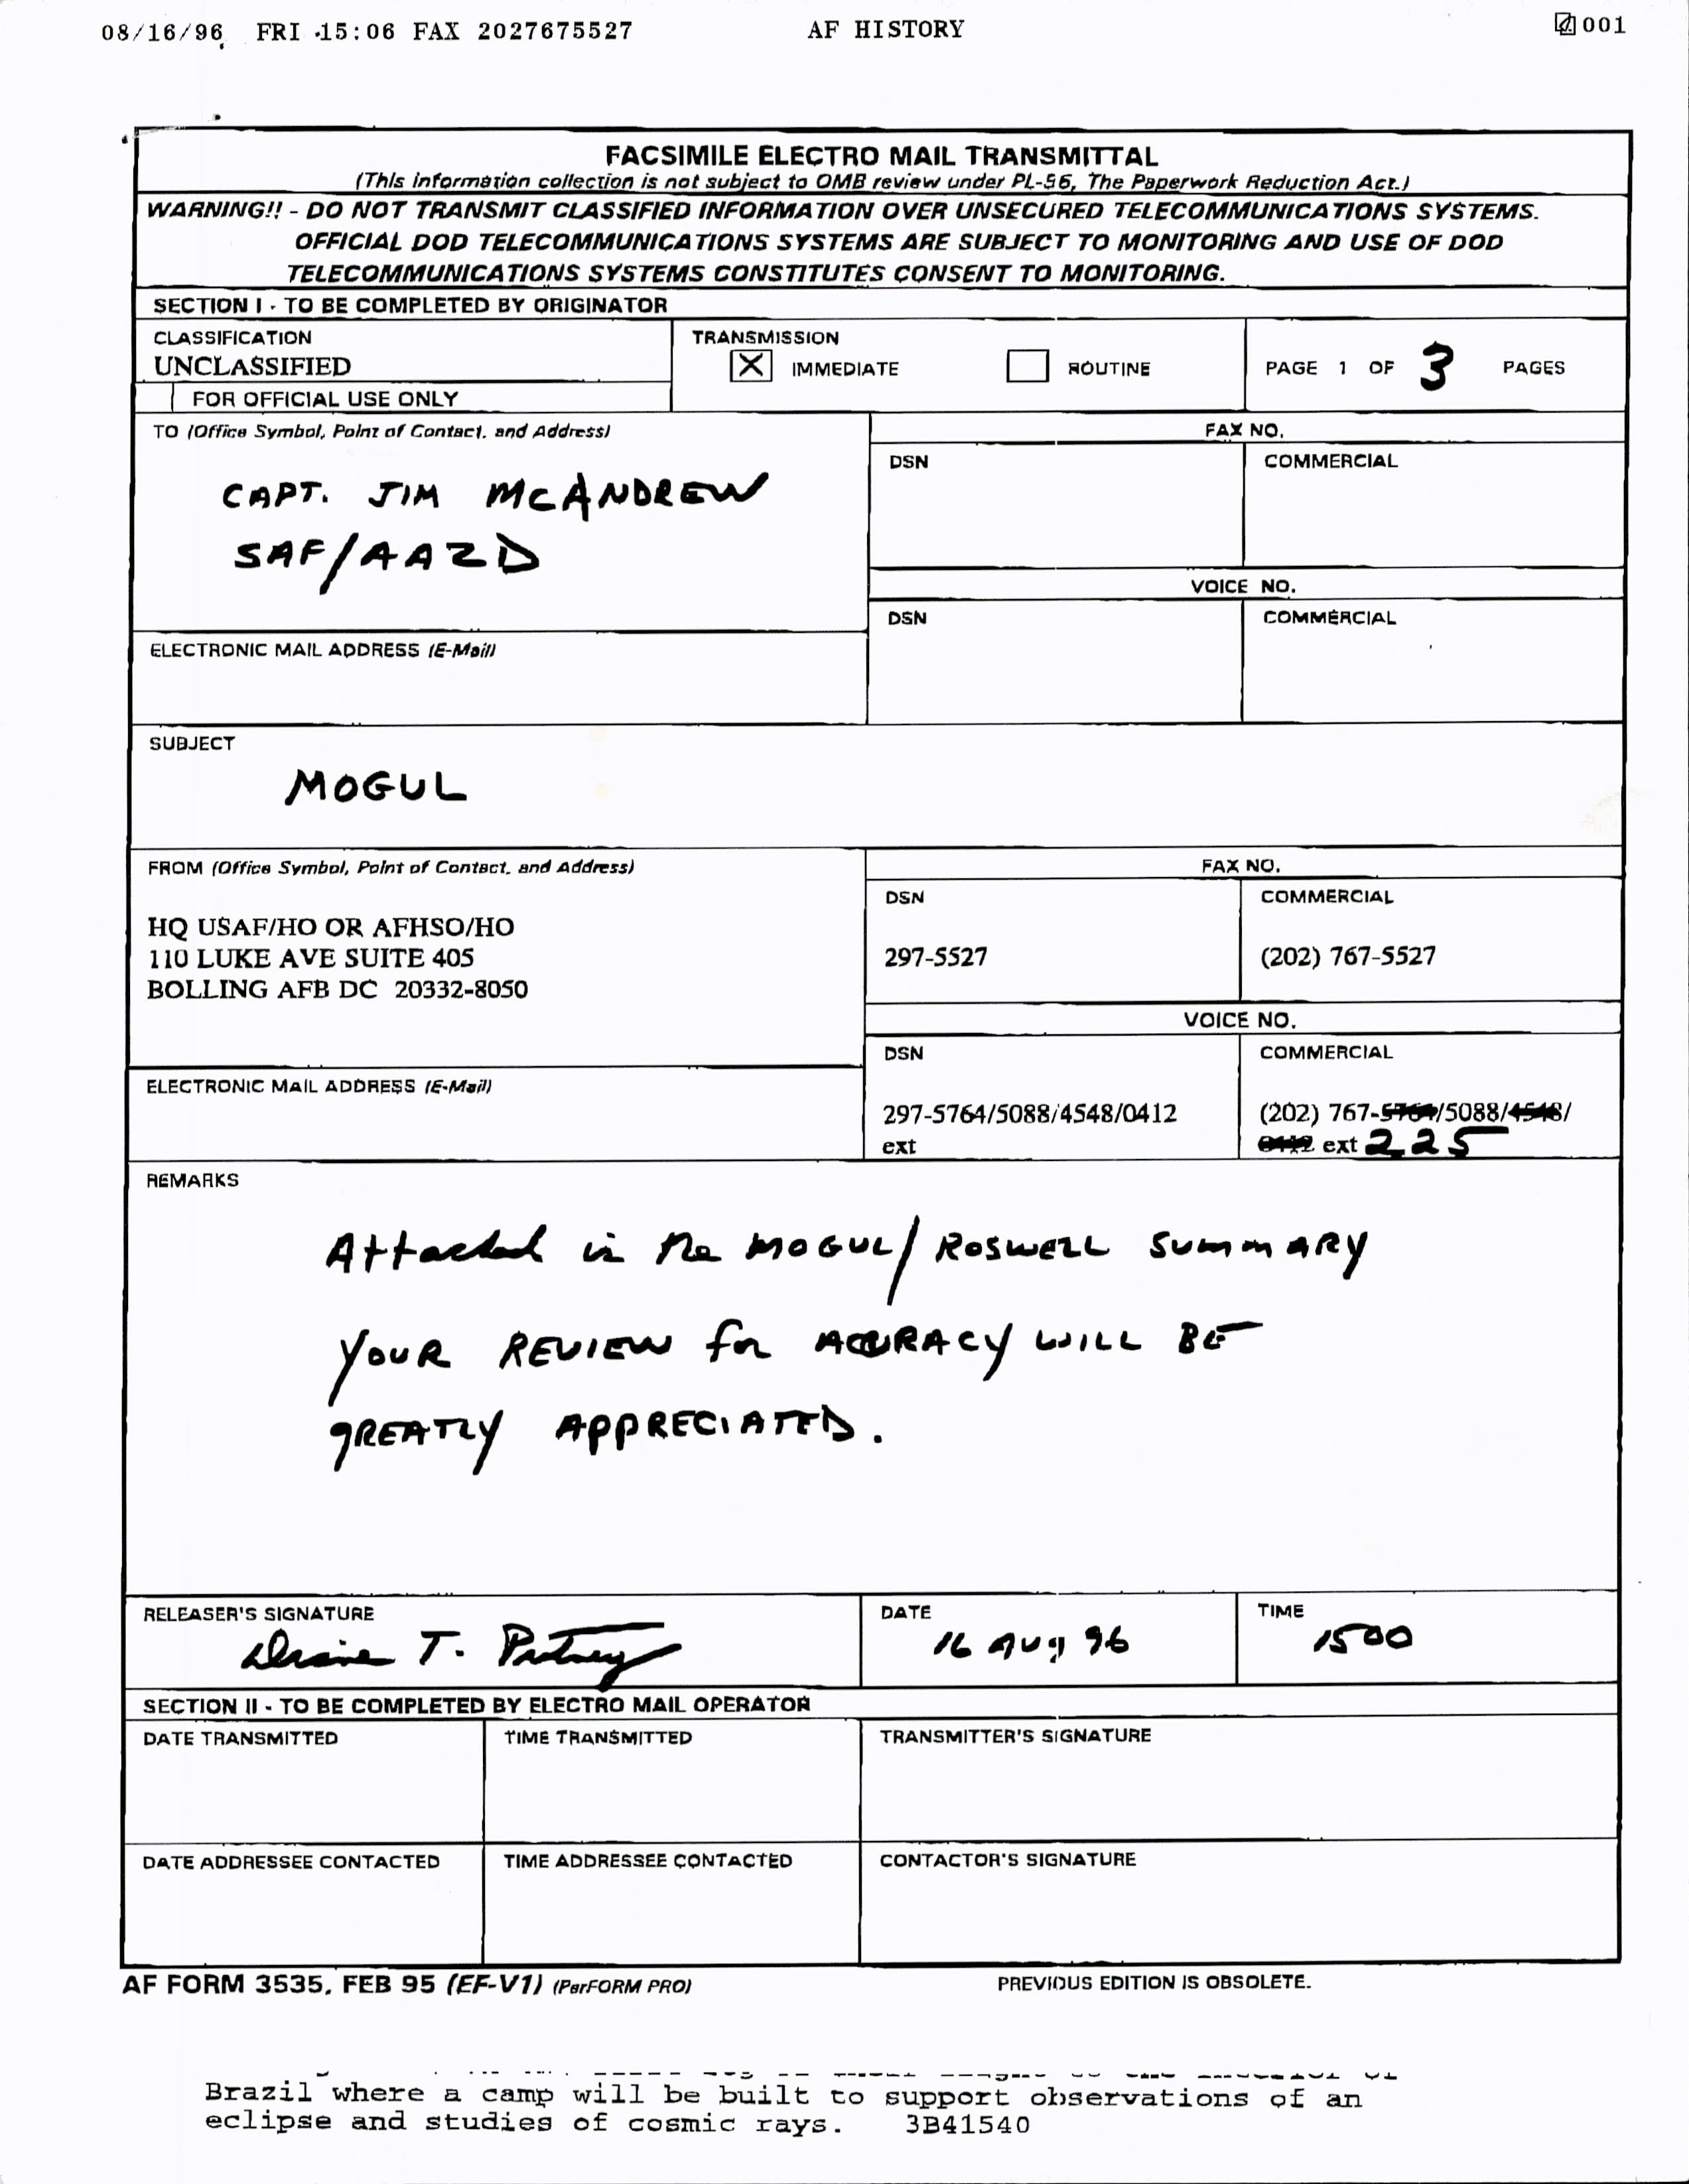 08/16/96 FRI 15:06 FAX 2027675527 AF HISTORY 001
FACSIMILE ELECTRO MAIL TRANSMITTAL
(This information collection is not subject to OMB review under PL-96, The Paperwork Reduction Act.)
WARNING!! - DO NOT TRANSMIT CLASSIFIED INFORMATION OVER UNSECURED TELECOMMUNICATIONS SYSTEMS.
OFFICIAL DOD TELECOMMUNICATIONS SYSTEMS ARE SUBJECT TO MONITORING AND USE OF DOD
TELECOMMUNICATIONS SYSTEMS CONSTITUTES CONSENT TO MONITORING.
SECTION I - TO BE COMPLETED BY ORIGINATOR
CLASSIFICATION
UNCLASSIFIED
FOR OFFICIAL USE ONLY
TRANSMISSION
X IMMEDIATE ROUTINE
PAGE 1 OF 3 PAGES
TO (Office Symbol, Point of Contact, and Address)
CAPT. JIM MCANDREW
SAF/AAZD
FAX NO.
DSN COMMERCIAL
VOICE NO.
DSN COMMERCIAL
ELECTRONIC MAIL ADDRESS (E-Mail)
SUBJECT
MOGUL
FROM (Office Symbol, Point of Contact, and Address)
HQ USAF/HO OR AFHSO/HO
110 LUKE AVE SUITE 405
BOLLING AFB DC 20332-8050
FAX NO.
DSN COMMERCIAL
297-5527 (202) 767-5527
VOICE NO.
DSN COMMERCIAL
297-5764/5088/4548/0412 (202) 767-5764/5088/4548/
ext 0412 ext 225
ELECTRONIC MAIL ADDRESS (E-Mail)
REMARKS
Attached is the MOGUL/ROSWELL SUMMARY
YOUR REVIEW for ACCURACY WILL BE
GREATLY APPRECIATED.
RELEASER'S SIGNATURE DATE TIME
Diane T. Putney 16 Aug 96 1500
SECTION II - TO BE COMPLETED BY ELECTRO MAIL OPERATOR
DATE TRANSMITTED TIME TRANSMITTED TRANSMITTER'S SIGNATURE
DATE ADDRESSEE CONTACTED TIME ADDRESSEE CONTACTED CONTACTOR'S SIGNATURE
AF FORM 3535, FEB 95 (EF-V1) (PerFORM PRO) PREVIOUS EDITION IS OBSOLETE.
Brazil where a camp will be built to support observations of an
eclipse and studies of cosmic rays. 3B41540